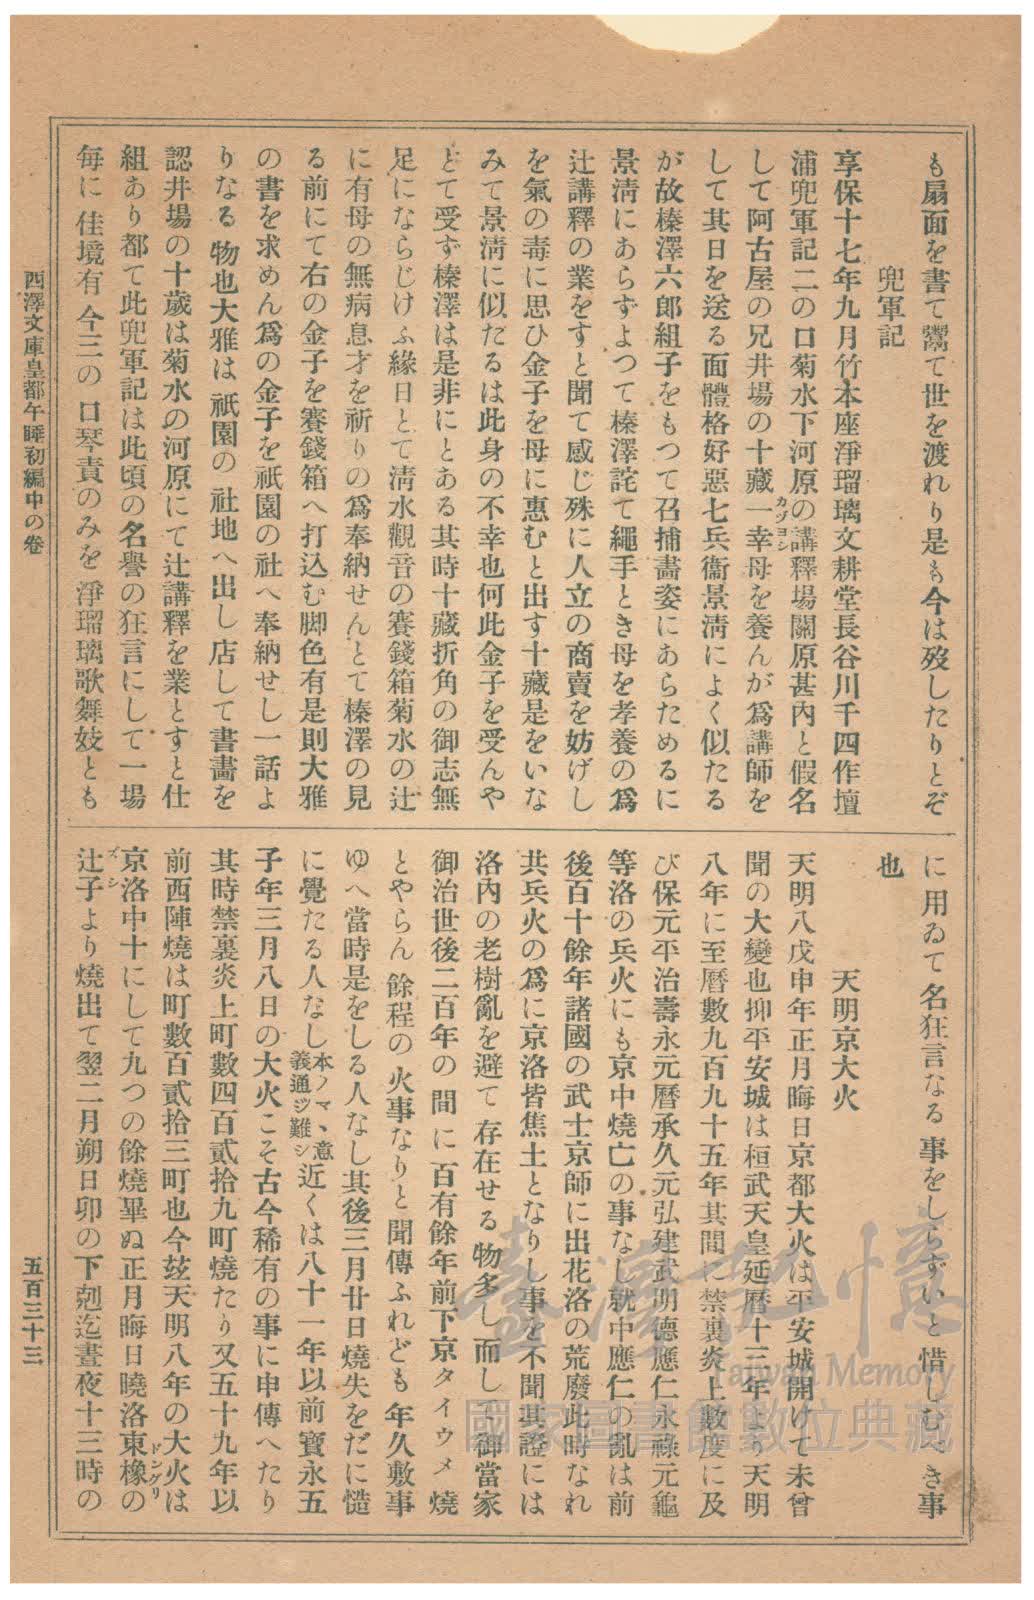 も扇面を書て鬻て世を渡れり是も今は歿したりとぞ
兜軍記
享保十七年九月竹本座淨瑠璃文耕堂長谷川千四作壇
浦兜軍記二の口菊水下河原の講釋場關原甚內と假名
して阿古屋の兄井場の十藏一幸母を養んが爲講師を
カヅヨシ
して其日を送る面體格好惡七兵衞景淸によく似たる
が故榛澤六郎組子をもつて召捕畵姿にあらためるに
景淸にあらずよつて榛澤詫て繩手とき母を孝養の爲
辻講釋の業をすと聞て感じ殊に人立の商賣を妨げし
を氣の毒に思ひ金子を母に惠むと出す十藏是をいな
みて景淸に似だるは此身の不幸也何此金子を受んや
とて受ず榛澤は是非にとある其時十藏折角の御志無
足にならじけふ緣日とて淸水觀音の賽錢箱菊水の辻
に有母の無病息才を祈りの爲奉納せんとて榛澤の見
る前にて右の金子を賽錢箱へ打込む脚色有是則大雅
の書を求めん爲の金子を祇園の社へ奉納せし一話よ
りなる物也大雅は祇園の社地へ出し店して書畵を
認井場の十歲は菊水の河原にて辻講釋を業とすと仕
組あり都て此兜軍記は此頃の名譽の狂言にして一場
每に佳境有今三の口琴責のみを淨瑠璃歌舞妓とも
に用ゐて名狂言なる事をしらずいと惜しむべき事
也
天明京大火
天明八戊申年正月晦日京都大火は平安城開けて未曾
聞の大變也抑平安城は桓武天皇延曆十三年より天明
八年に至曆數九百九十五年其間に禁裏炎上數度に及
び保元平治壽永元曆承久元弘建武明德應仁永祿元龜
等洛の兵火にも京中燒亡の事なし就中應仁の亂は前
後百十餘年諸國の武士京師に出花洛の荒廢此時なれ
共兵火の爲に京洛皆焦土となりし事を不聞其證には
洛內の老樹亂を避て存在せる物多し而して御當家
御治世後二百年の間に百有餘年前下京タイウメ燒
とやらん餘程の火事なりと聞傳ふれども年久敷事
ゆへ當時是をしる人なし其後三月廿日燒失をだに慥
に覺たる人なし本ノマヽ意義通ジ難シ近くは八十一年以前寶永五
子年三月八日の大火こそ古今稀有の事に申傳へたり
其時禁裏炎上町數四百貳拾九町燒たり又五十九年以
前西陣燒は町數百貳拾三町也今玆天明八年の大火は
京洛中十にして九つの餘燒畢ぬ正月晦日曉洛東橡の
ドングリ
辻子より燒出て翌二月朔日卯の下剋迄晝夜十三時の
ヅシ
西澤文庫皇都午睡初編中の卷
五百三十三
臺灣記憶
Taiwan Memory
國家圖書館數位典藏